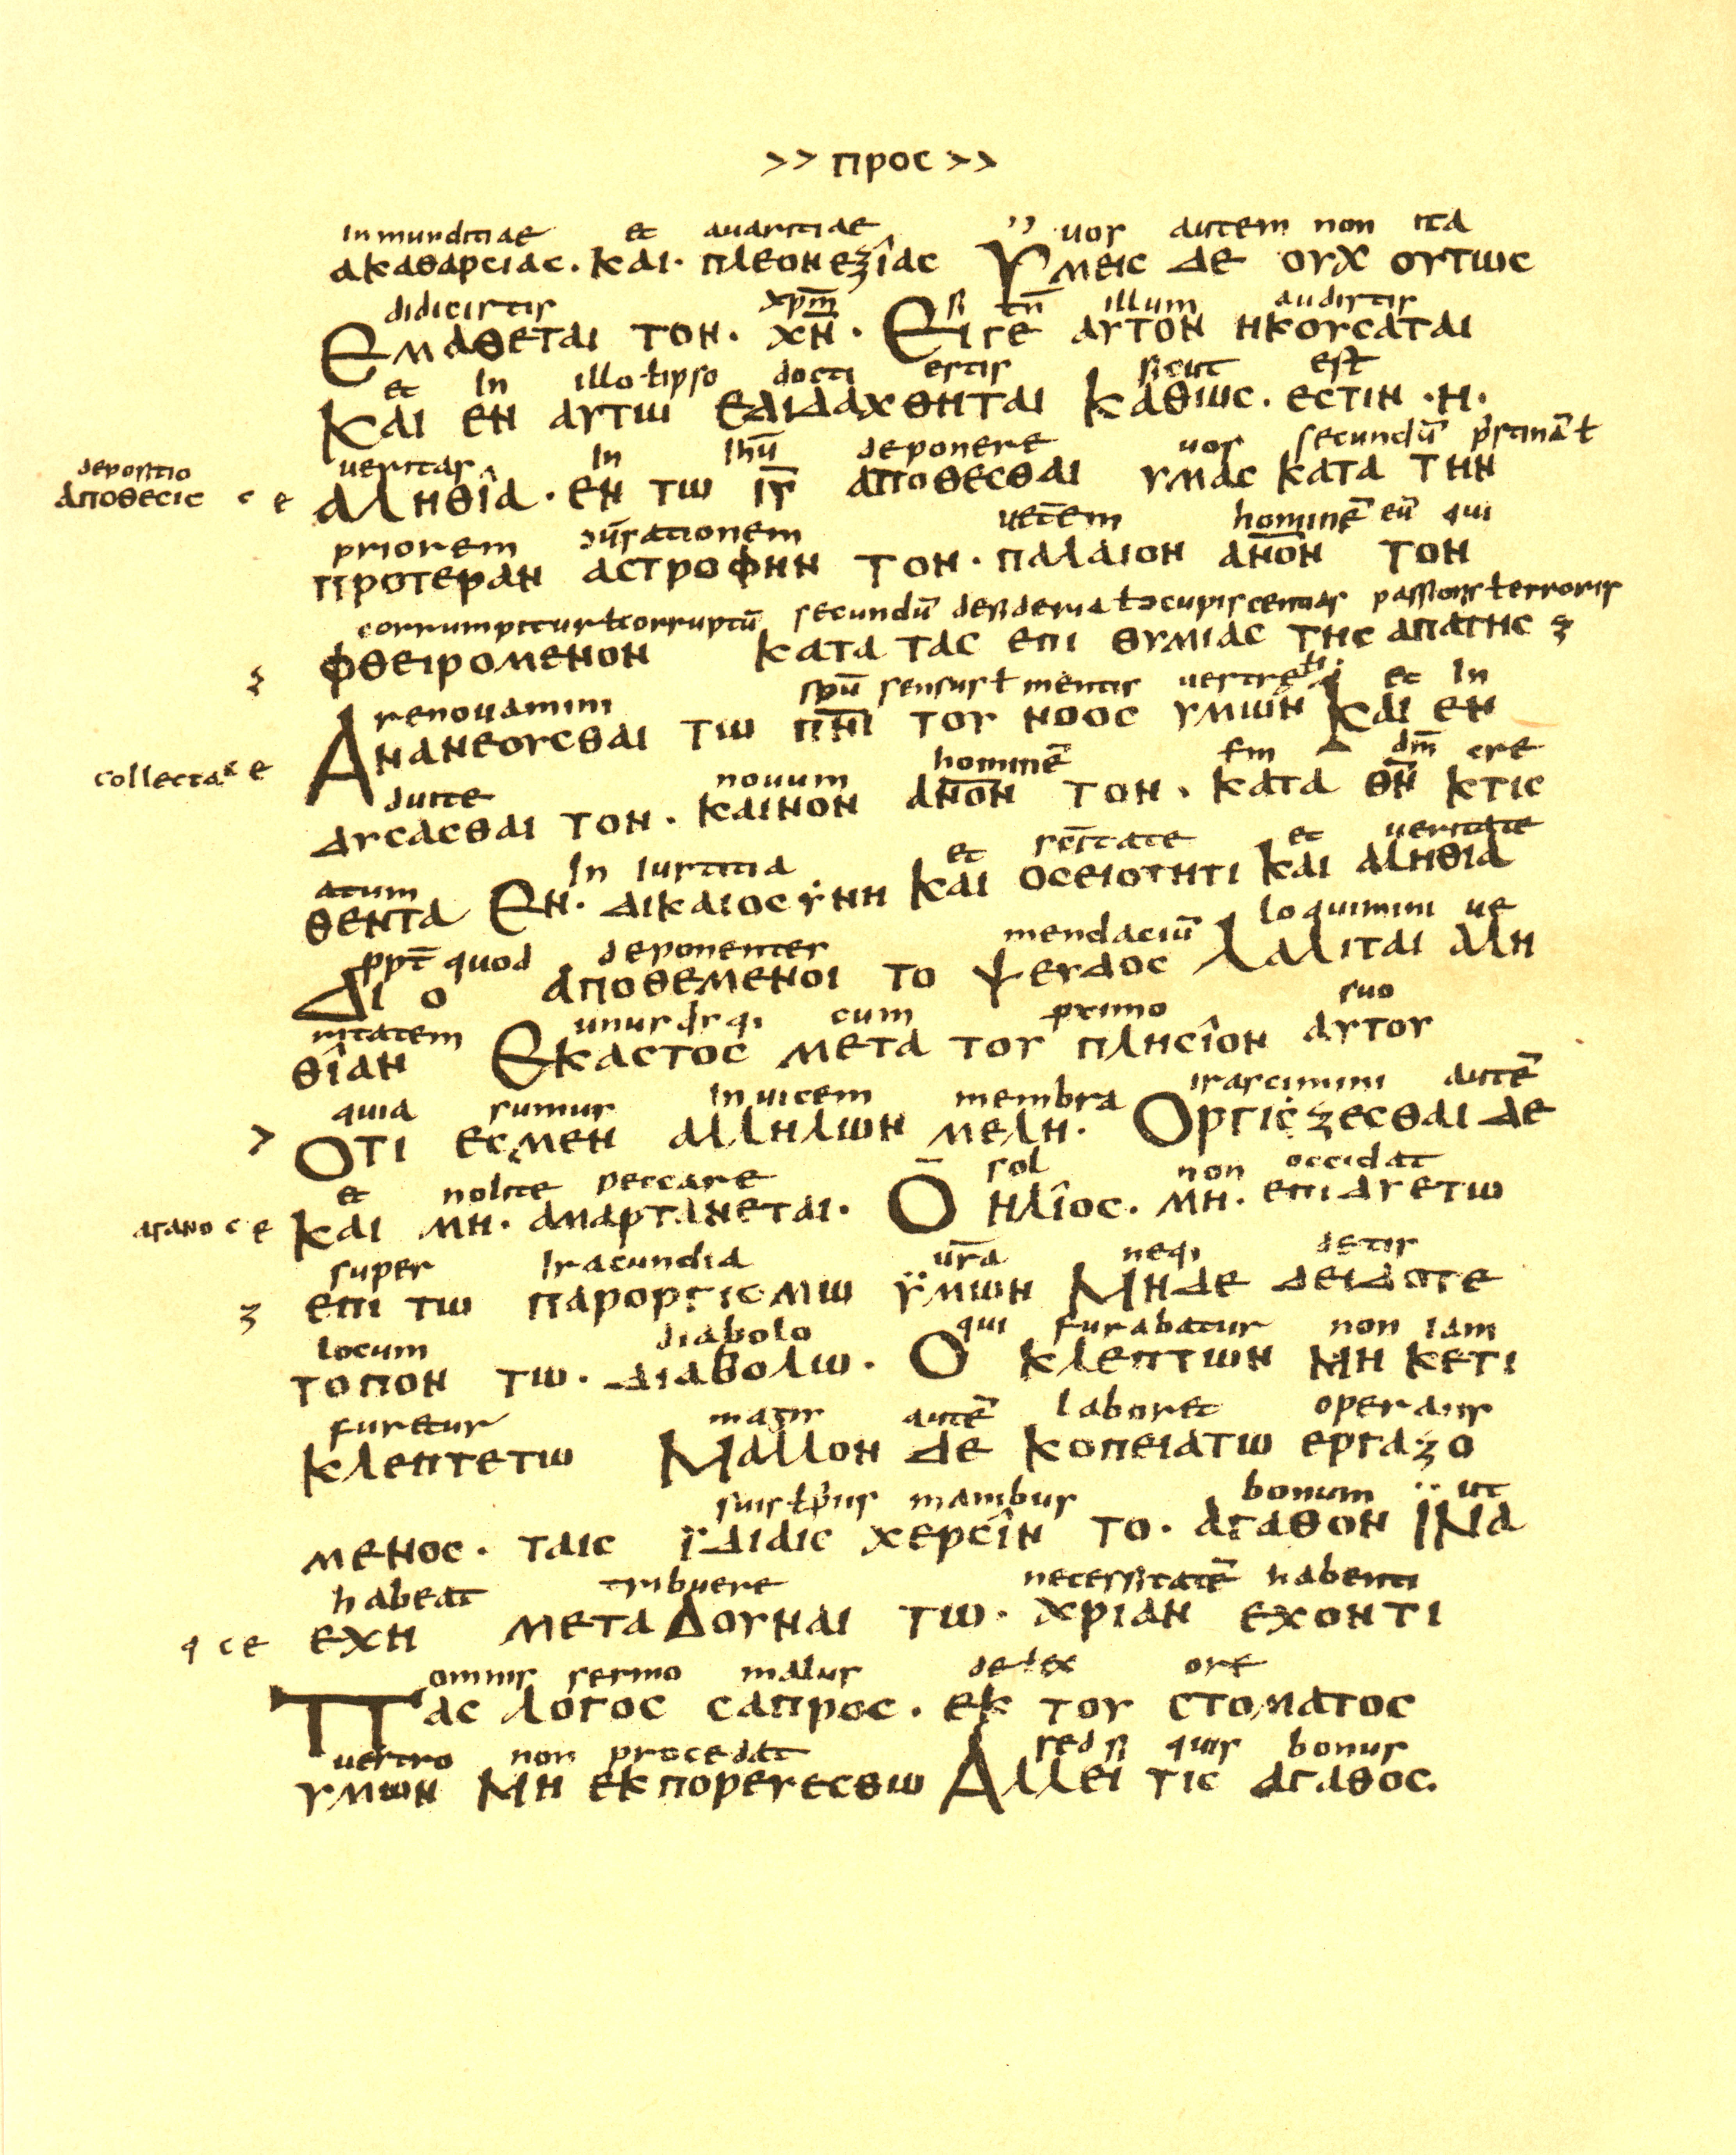 >> προс >>
inmunditiae et auaritiae uos autem non ita
ακαθαρсιαс. και. πλεονεξîαс Υμειс δε ουχ ουτωс
didicistis xpm̄ si tn̄ illum audistis
Εμαθεται τον. χ̄ν̄. Ειγε αυτον ηκουсαται
et In illo ł ipso docti estis sicut est
Και εν αυτω εδιδαχθηται Καθωс. εсτιν. η.
depositio ueritas In Ihū deponere uos secundū pristinā ł
αποθεсιс с е αληθîα. εν τω ῑῡ αποθεсθαι υμαс κατα την
priorem ↄūsationem uetēem hominē eū qui
προτεραν αсτροφην τον. παλαιον ᾱν̄ο̄ν̄ τον
corrumpitur ł corruptū secundū desideria ł ↄcupiscentias passionis ł erroris
φθειρομενον κατα ταс επι θυμιαс τηс απατηс
renouamini spū sensus ł mentis uestre et In
Ανανεουсθαι τω π̄ν̄ῑ του νοοс υμων Και εν
collecta с е
duite nouum hominē sm dm̄ cre
δυсαсθαι τον. καινον ᾱν̄ο̄ν̄ τον. κατα θ̄ν̄ κτιс
atum In iustitia et scītate et ueritate
θεντα Εν. δικαιοсυνη και οсειοτητι και αληθια
ppt̄ quod deponentes mendaciū loquimini ue
Δι ο αποθεμενοι το ψευδοс λαλιται αλη
ritatem unus qsqi cum primo suo
θîαν Εκαсτοс μετα του πληсîον αυτου
quia sumus inuicem membra irascimini autē
> Οτι εсμεν αλληλων μελη. Οργιсζεсθαι δε
et nolite peccare sol non occidat
αγανο с е και μη. αμαρτανεται. Ο ηλîοс. μη. επιδυετω
super Iracundia ur̄a neqi detis
επι τω παροργιсμω ϋμων Μηδε δειδοτε
locum diabolo qui furabatur non iam
τοπον τω. διαβολω. Ο κλεπτων μη κετι
furetur magis autē laboret operans
κλεπτετω Μαλλον δε κοπειατω εργαζο
suis ł ppriis manibus bonum ut
μενοс. ταιс ϊδιαιс χερсîν το. αγαθον ϊΝα
habeat tribuere necessitatē habenti
q с е εχη μεταδουναι τω. χριαν εχοντι
omnis sermo malus de ł ex ore
Παс λογοс сαπροс. εκ του сτοματοс
uestro non procedat sed si quis bonus
υμων Μη εκπορευεсθω Αλλει τιс αγαθοс.